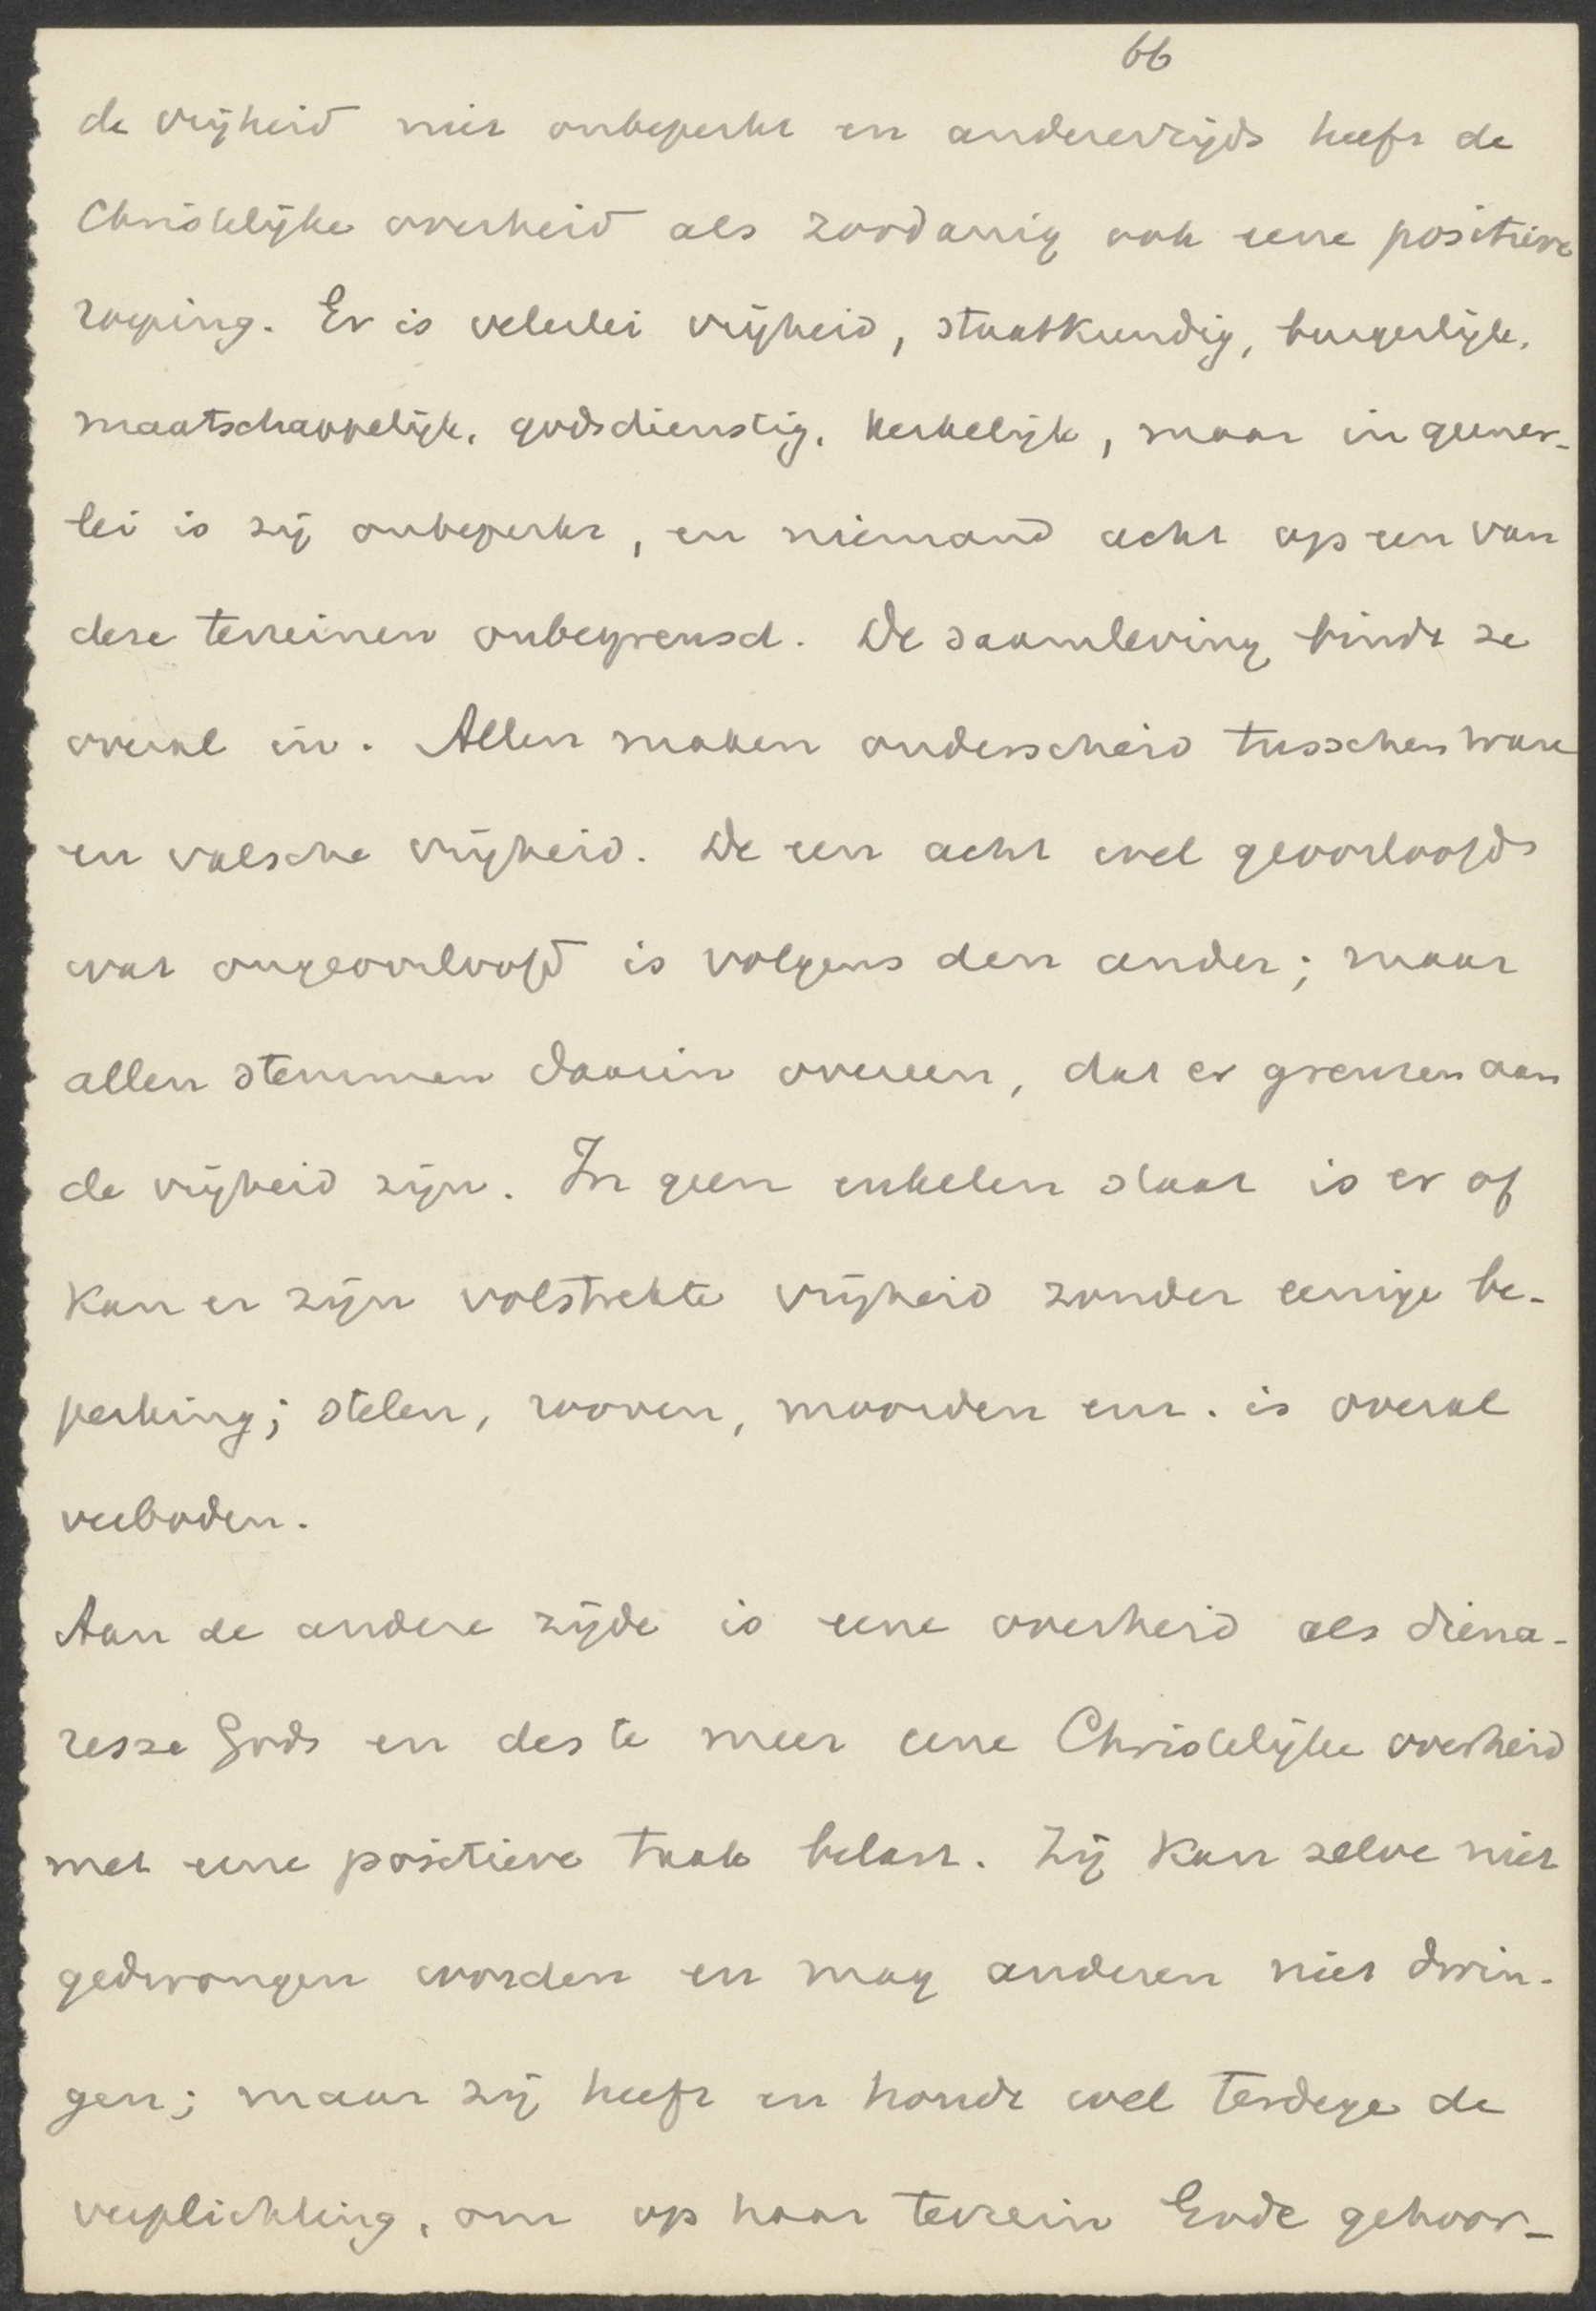 66
de vrijheid niet onbeperkt en anderenzijds heeft de
Christelijke overheid als zoodanig ook eene positieve
roeping. Er is velerlei vrijheid, staatkundig, burgerlijk,
maatschappelijk, godsdienstig, kerkelijk, maar in geener-
lei is zij onbeperkt, en niemand acht op een van
deze terreinen onbegrensd. De saamleving bindt ze
overal in. Allen maken onderscheid tusschen ware
en valsche vrijheid. De een acht wel geoorloofd
wat ongeoorloofd is volgens den ander; maar
allen stemmen daarin overeen, dat er grenzen aan
de vrijheid zijn. In geen enkelen staat is er of
kan er zijn volstrekte vrijheid zonder eenige be-
perking; stelen, rooven, moorden enz. is overal
verboden.
Aan de andere zijde is eene overheid als diena-
resse Gods en des te meer eene Christelijke overheid
met eene positieve taak belast. Zij kan zelve niet
gedwongen worden en mag anderen niet dwin-
gen; maar zij heeft en houdt wel terdege de
verplichting, om op haar terrein Gode gehoor-